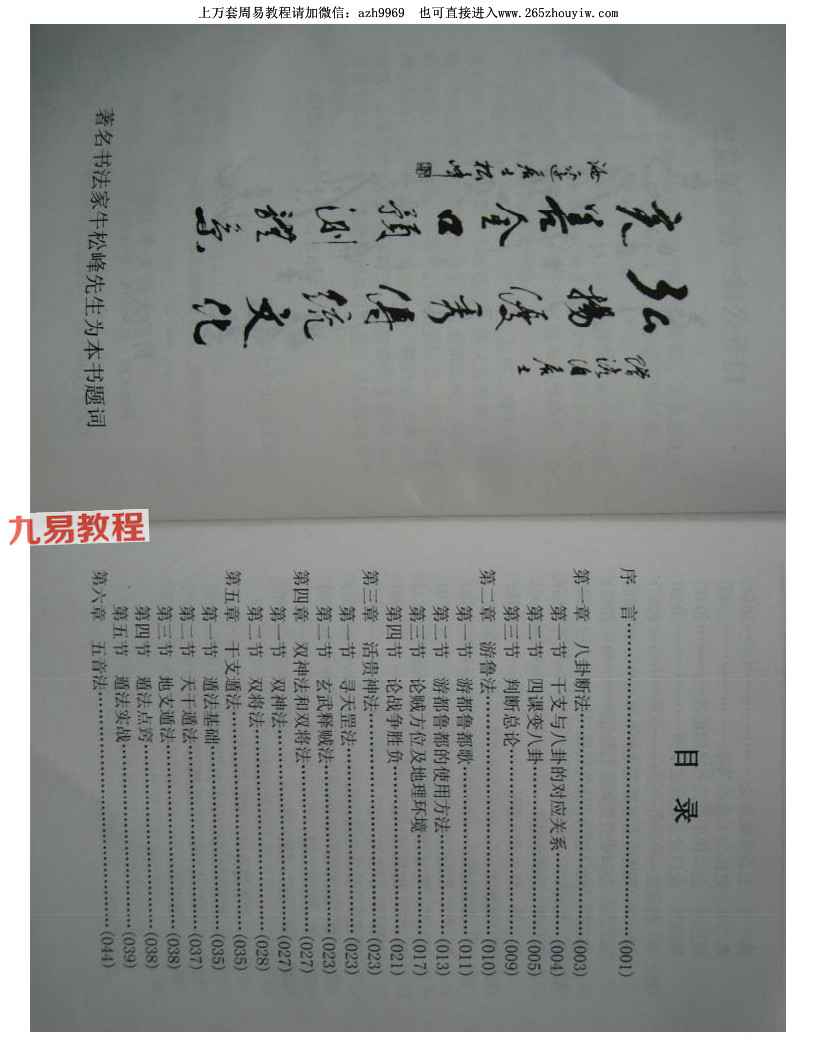 上万套周易教程请加微信：azh9969 也可直接进入www.265zhouyiw.com
居士
弘揚優秀傳統文化
完善金口預測體系
居士松峰
著名书法家牛松峰先生为本书题词
九易教程
目录
序 言……(001)
第一章 八卦断法……(003)
第一节 干支与八卦的对应关系……(004)
第二节 四课变八卦……(005)
第三节 判断总论……(009)
第二章 游鲁法……(010)
第一节 游都鲁都歌……(011)
第二节 游都鲁都的使用方法……(013)
第三节 论贼方位及地理环境……(017)
第四节 论战争胜负……(021)
第三章 活贵神法……(023)
第一节 寻天罡法……(023)
第二节 玄武释贼法……(023)
第四章 双神法和双将法……(027)
第一节 双神法……(027)
第二节 双将法……(028)
第五章 干支遁法……(035)
第一节 遁法基础……(035)
第二节 天干遁法……(037)
第三节 地支遁法……(038)
第四节 遁法点窍……(038)
第五节 遁法实战……(039)
第六章 五音法……(044)